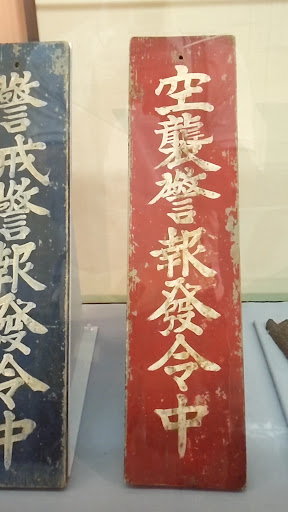 空襲警報發令中
警戒警報發令中